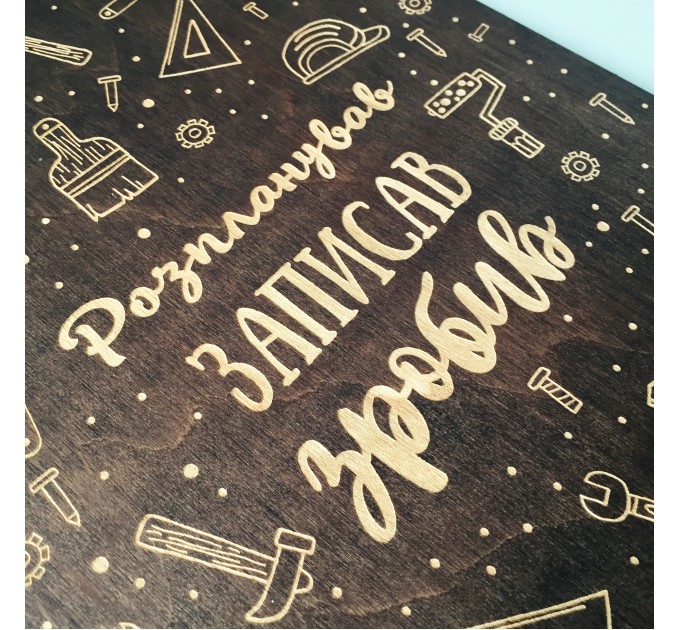 Розпланував
ЗАПИСАВ
зробив